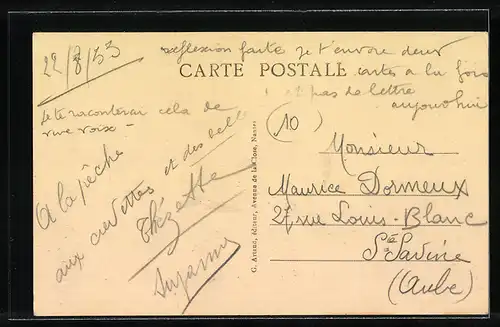 22/8/53
réflexion faite je t'envoie deux
cartes à la fois
et pas de lettre
aujourd'hui
CARTE POSTALE
Je te raconterai cela de
vive voix -
A la pêche
aux crevettes et des belles
Thézette
Suzanne
G. Artaud, éditeur, Avenue de la Close, Nantes
(10)
Monsieur
Maurice Dormeux
27 rue Louis-Blanc
Ste Savine
(Aube)